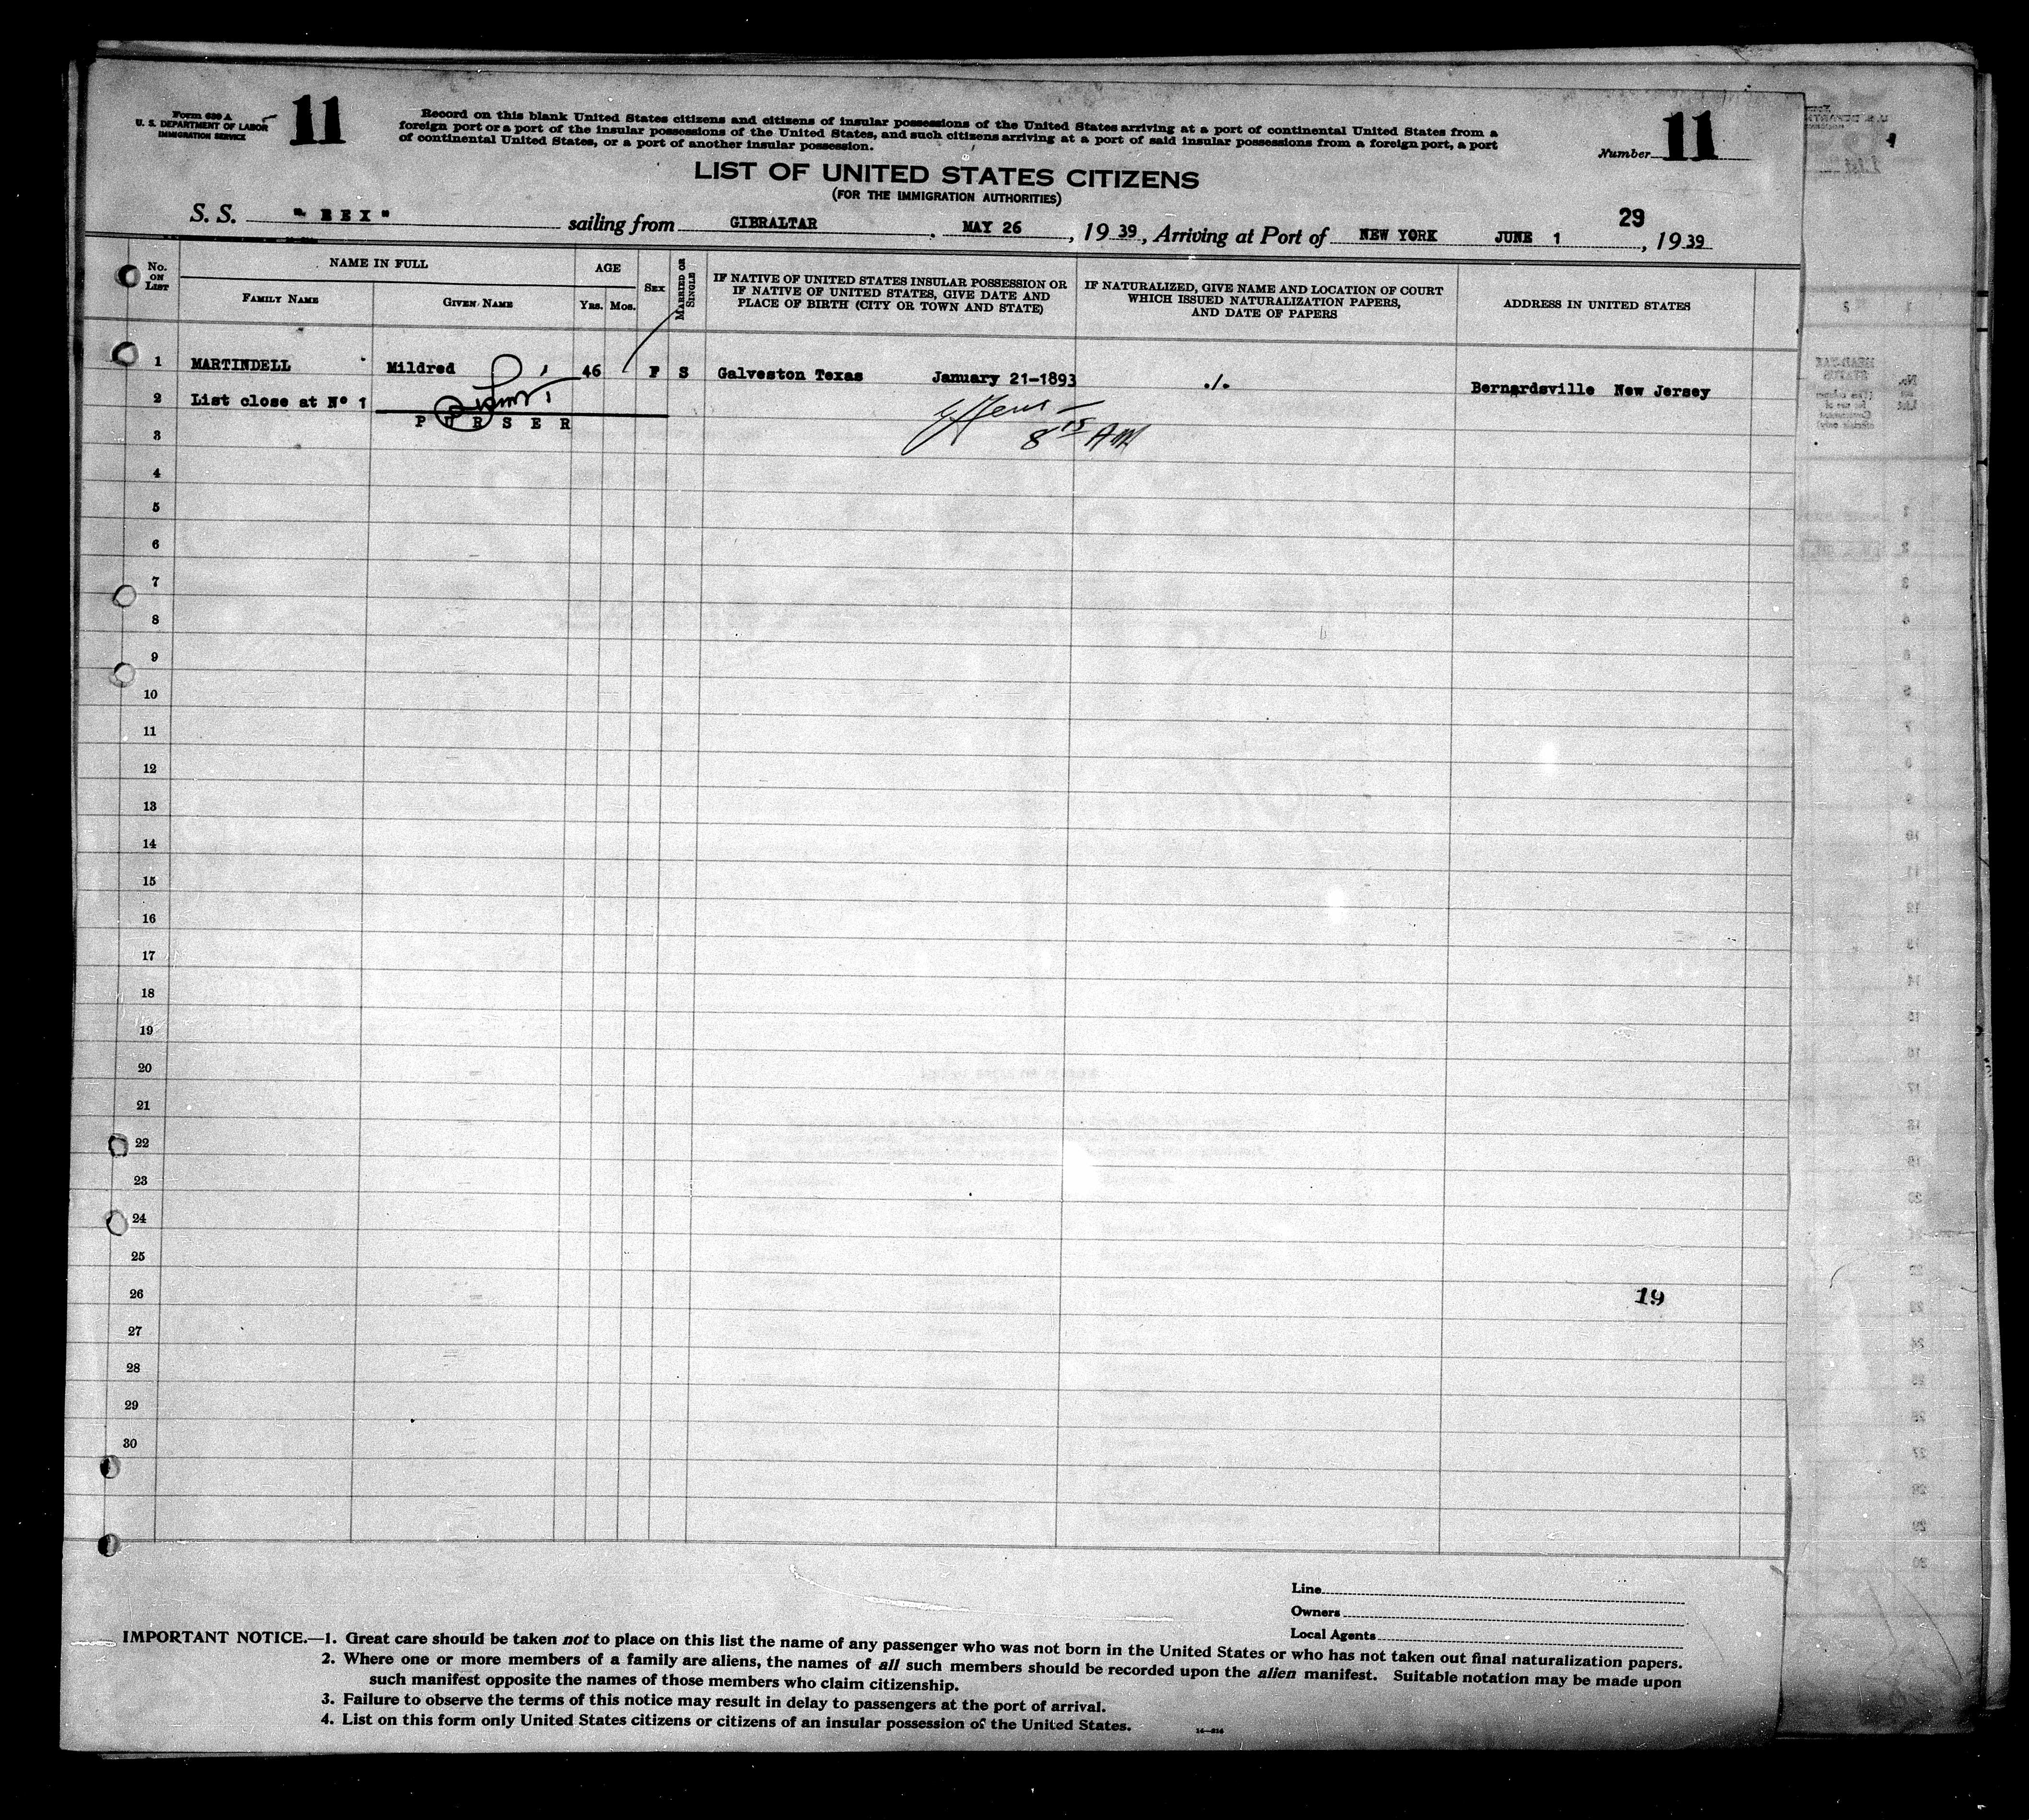 Form 630 A
U. S. DEPARTMENT OF LABOR
IMMIGRATION SERVICE
11
Record on this blank United States citizens and citizens of insular possessions of the United States arriving at a port of continental United States from a
foreign port or a port of the insular possessions of the United States, and such citizens arriving at a port of said insular possessions from a foreign port, a port
of continental United States, or a port of another insular possession.
Number 11
LIST OF UNITED STATES CITIZENS
(FOR THE IMMIGRATION AUTHORITIES)
29
S. S. "REX" sailing from GIBRALTAR, MAY 26, 1939, Arriving at Port of NEW YORK JUNE 1, 1939
No. ON LIST
NAME IN FULL
FAMILY NAME
GIVEN NAME
AGE
Yrs. Mos.
SEX
MARRIED OR SINGLE
IF NATIVE OF UNITED STATES INSULAR POSSESSION OR
IF NATIVE OF UNITED STATES, GIVE DATE AND
PLACE OF BIRTH (CITY OR TOWN AND STATE)
IF NATURALIZED, GIVE NAME AND LOCATION OF COURT
WHICH ISSUED NATURALIZATION PAPERS,
AND DATE OF PAPERS
ADDRESS IN UNITED STATES
1 MARTINDELL Mildred 46 F S Galveston Texas January 21-1893 ./. Bernardsville New Jersey
2 List close at Nº 1
PURSER
8 15 AM
3
4
5
6
7
8
9
10
11
12
13
14
15
16
17
18
19
20
21
22
23
24
25
26
19
27
28
29
30
Line
Owners
Local Agents
IMPORTANT NOTICE.—1. Great care should be taken not to place on this list the name of any passenger who was not born in the United States or who has not taken out final naturalization papers.
2. Where one or more members of a family are aliens, the names of all such members should be recorded upon the alien manifest. Suitable notation may be made upon
such manifest opposite the names of those members who claim citizenship.
3. Failure to observe the terms of this notice may result in delay to passengers at the port of arrival.
4. List on this form only United States citizens or citizens of an insular possession of the United States.